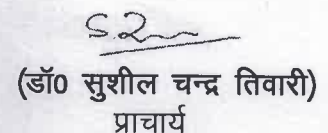 (डॉ0 सुशील चन्द्र तिवारी)
प्राचार्य